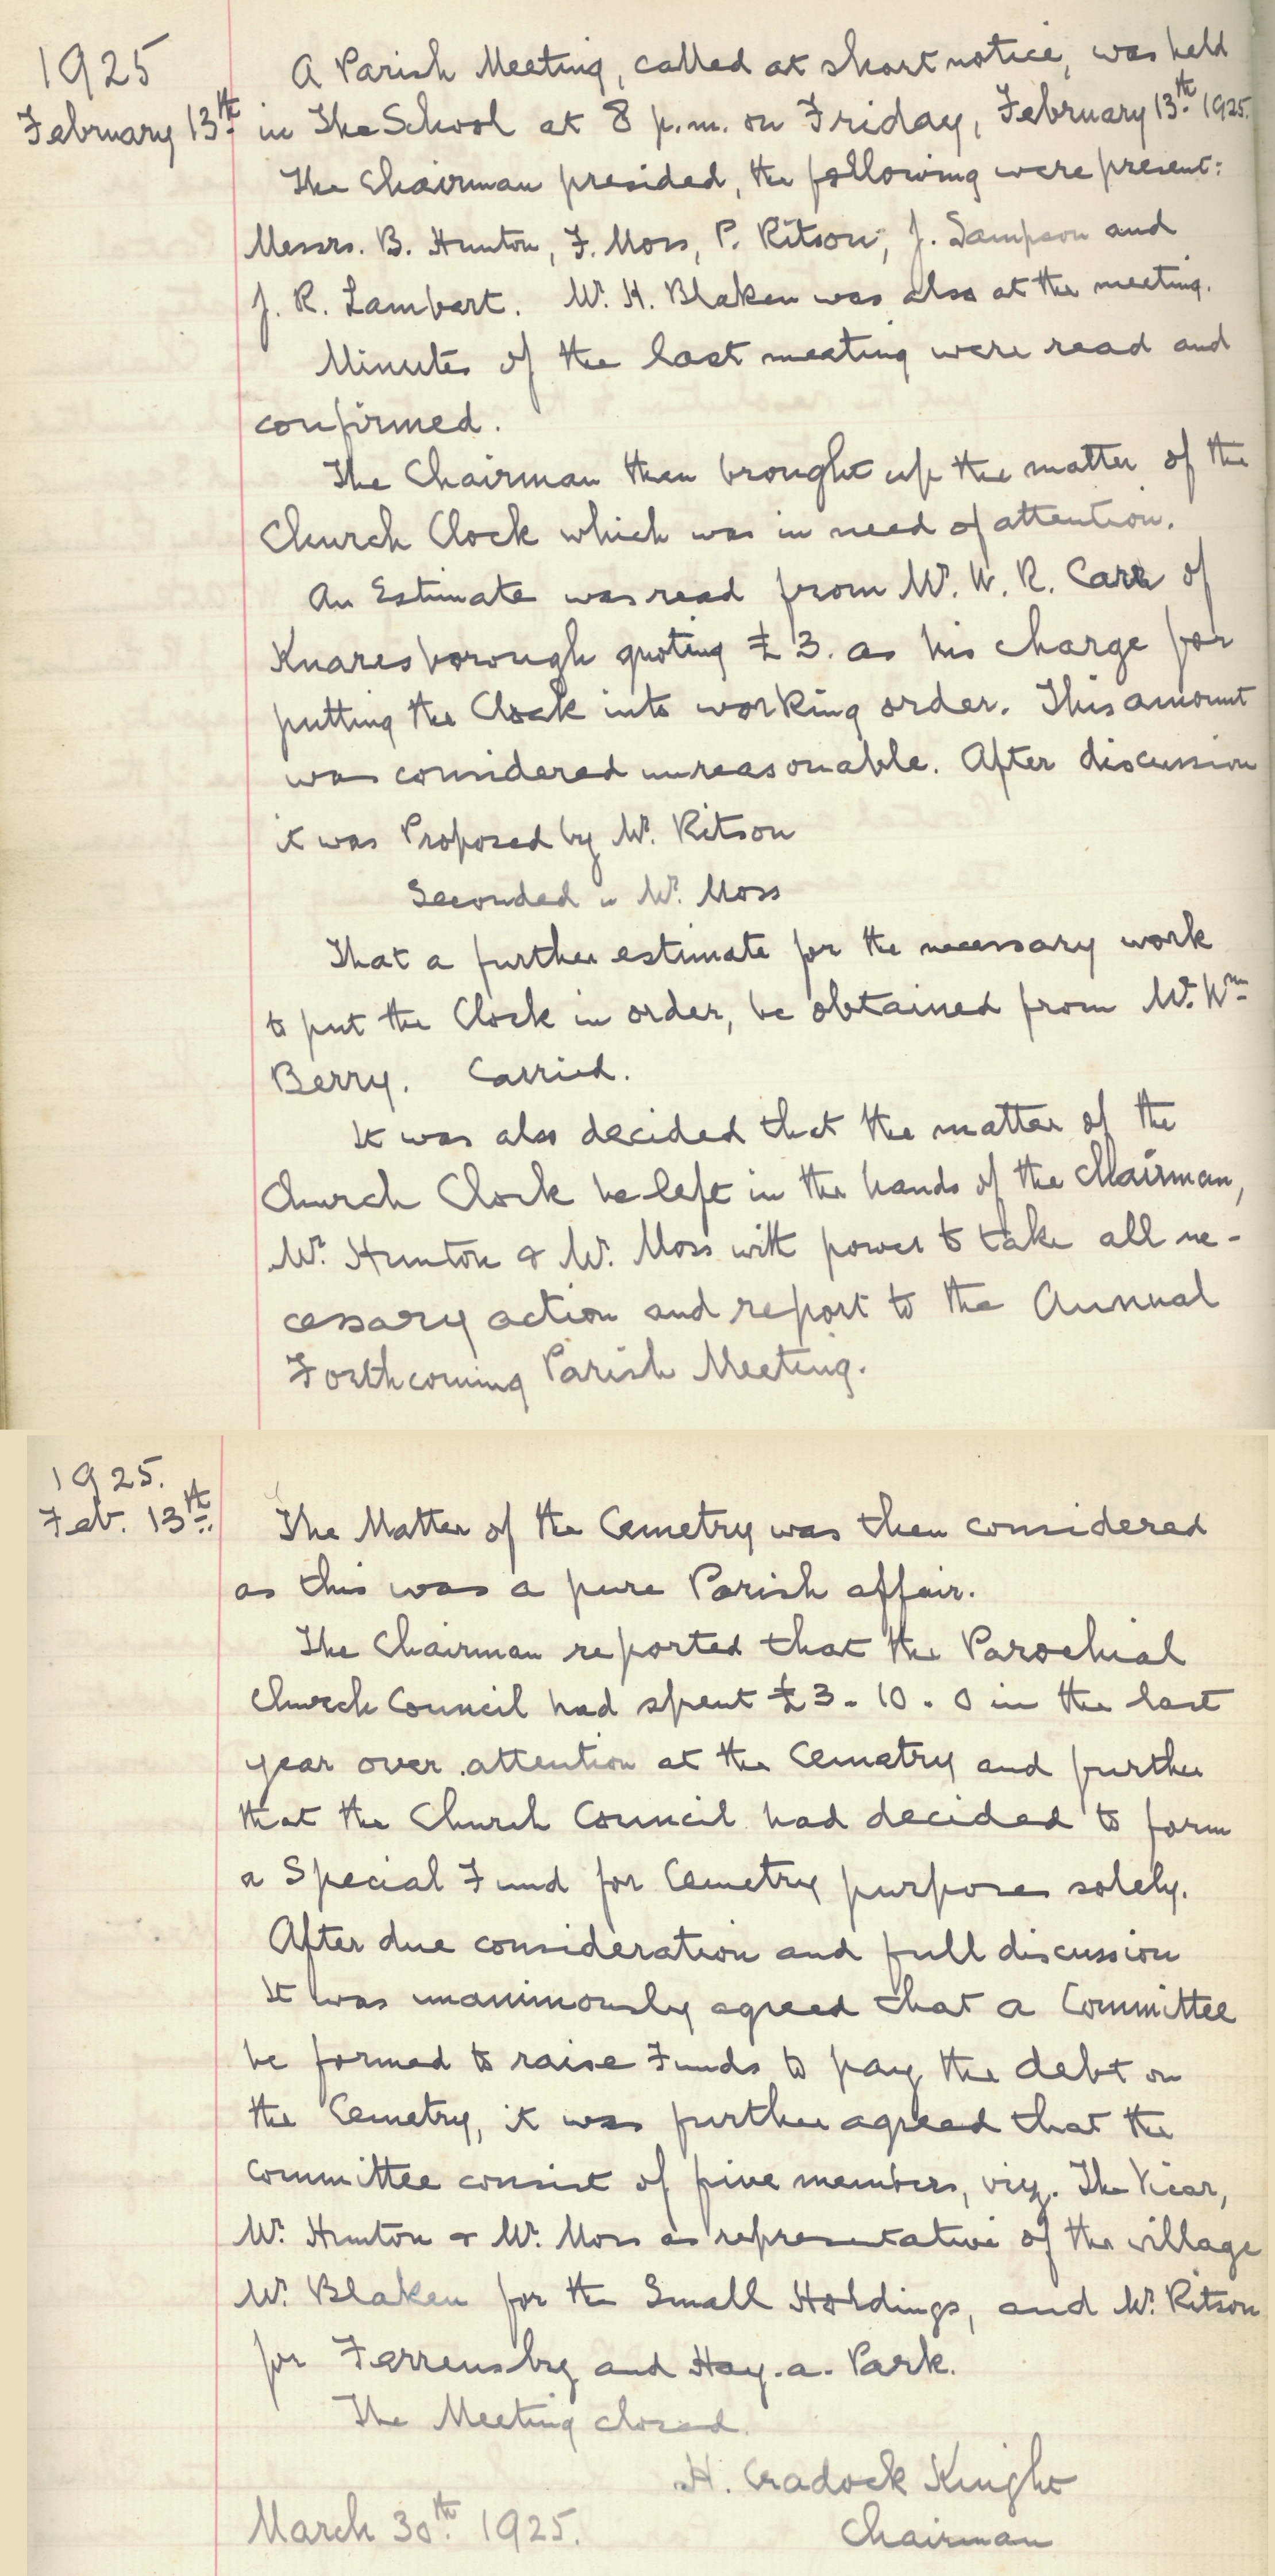 1925
February 13th
A Parish Meeting, called at short notice, was held
in The School at 8 p.m. on Friday, February 13th 1925.
The Chairman presided, the following were present:
Messrs. B. Hunton, F. Moss, P. Ritson, J. Sampson and
J. R. Lambert. Mr. H. Blaken was also at the meeting.
Minutes of the last meeting were read and
confirmed.
The Chairman then brought up the matter of the
Church Clock which was in need of attention.
An Estimate was read from Mr. W. R. Carr of
Knaresborough quoting £3. as his charge for
putting the Clock into working order. This amount
was considered unreasonable. After discussion
it was Proposed by Mr. Ritson
Seconded " Mr. Moss
That a further estimate for the necessary work
to put the Clock in order, be obtained from Mr. Wm
Berry. Carried.
It was also decided that the matter of the
Church Clock be left in the hands of the Chairman,
Mr. Hunton & Mr. Moss with power to take all ne-
cessary action and report to the Annual
Forthcoming Parish Meeting.
1925.
Feb. 13th.
The Matter of the Cemetry was then considered
as this was a pure Parish affair.
The Chairman reported that the Parochial
Church Council had spent £3-10-0 in the last
year over attention at the Cemetry and further
that the Church Council had decided to form
a Special Fund for Cemetry purposes solely.
After due consideration and full discussion
It was unanimously agreed that a Committee
be formed to raise Funds to pay the debt on
the Cemetry, it was further agreed that the
Committee consist of five members, viz. The Vicar,
Mr. Hunton & Mr. Moss as representative of the village
Mr. Blaken for the Small Holdings, and Mr. Ritson
for Ferrensby and Hay-a-Park.
The Meeting closed.
H. Cradock Knight
March 30th. 1925.
Chairman